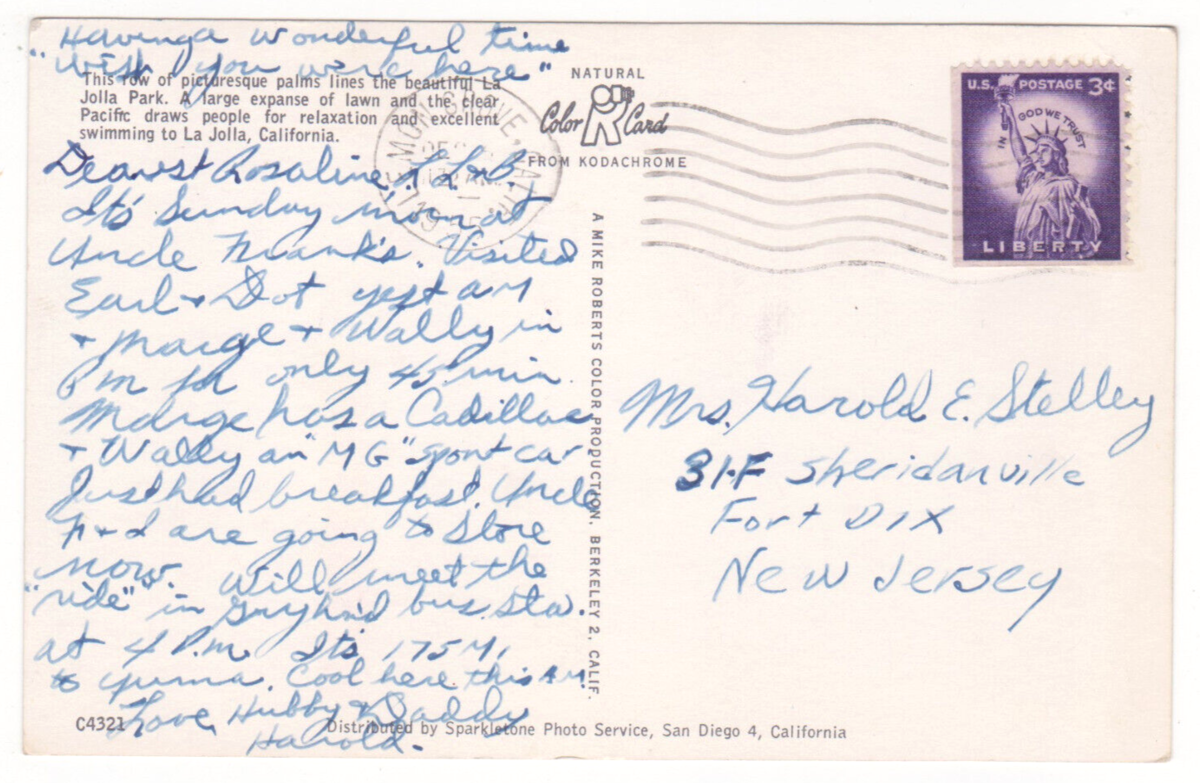 Having a wonderful time
"Wish you were here"
This row of picturesque palms lines the beautiful La
Jolla Park. A large expanse of lawn and the clear
Pacific draws people for relaxation and excellent
swimming to La Jolla, California.
Dearest Rosaline, L & B
It's Sunday morn at
Uncle Frank's. Visited
Earl + Dot yest AM
+ Marge + Wally in
PM for only 45 min.
Marge has a Cadillac
+ Wally an "MG" sport car.
Just had breakfast. Uncle
F + I are going to store
now. Will meet the
"ride" in Greyh'nd bus sta.
at 4 P.M. It's 175 M.
to Yuma. Cool here this AM.
Love, Hubby & Daddy
Harold.
C4321
Distributed by Sparkletone Photo Service, San Diego 4, California
NATURAL
Color Card
FROM KODACHROME
A MIKE ROBERTS COLOR PRODUCTION. BERKELEY 2, CALIF.
U.S. POSTAGE 3¢
IN GOD WE TRUST
LIBERTY
Mrs. Harold E. Stelley
31-F Sheridanville
Fort DIX
New Jersey